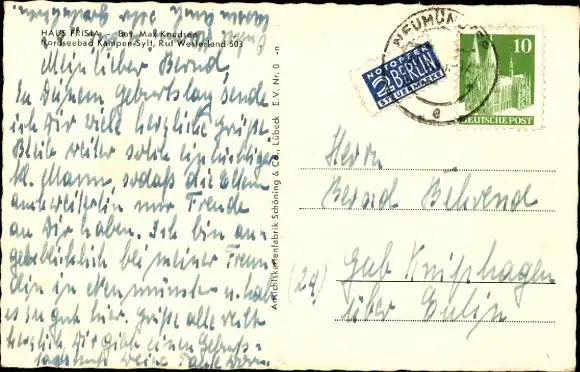 HAUS FRISIA Bes. Max Knudsen
Nordseebad Kampen-Sylt, Ruf Westerland 503
Mein lieber Bernd,
Zu Deinem Geburtstag sende
ich Dir viele herzliche Grüße
Bleib weiter solch ein lustiger
kl. Mann, sodaß die Eltern
auch weiterhin nur Freude
an Dir haben. Ich bin au-
genblicklich bei meiner Freun-
din in Neumünster u. hab
es so gut hier. Grüße alle recht
herzlich. Dir gibt einen Geburts-
Deine Tante
Ansichtskartenfabrik Schöning & Co., Lübeck E.V. Nr. 0 -n
NOTOPFER
2 BERLIN
STEUERMARKE
NEUMÜNSTER
e
10
DEUTSCHE POST
Herrn
Bernd Behrend
(24) Gut Kniphagen
über Eutin